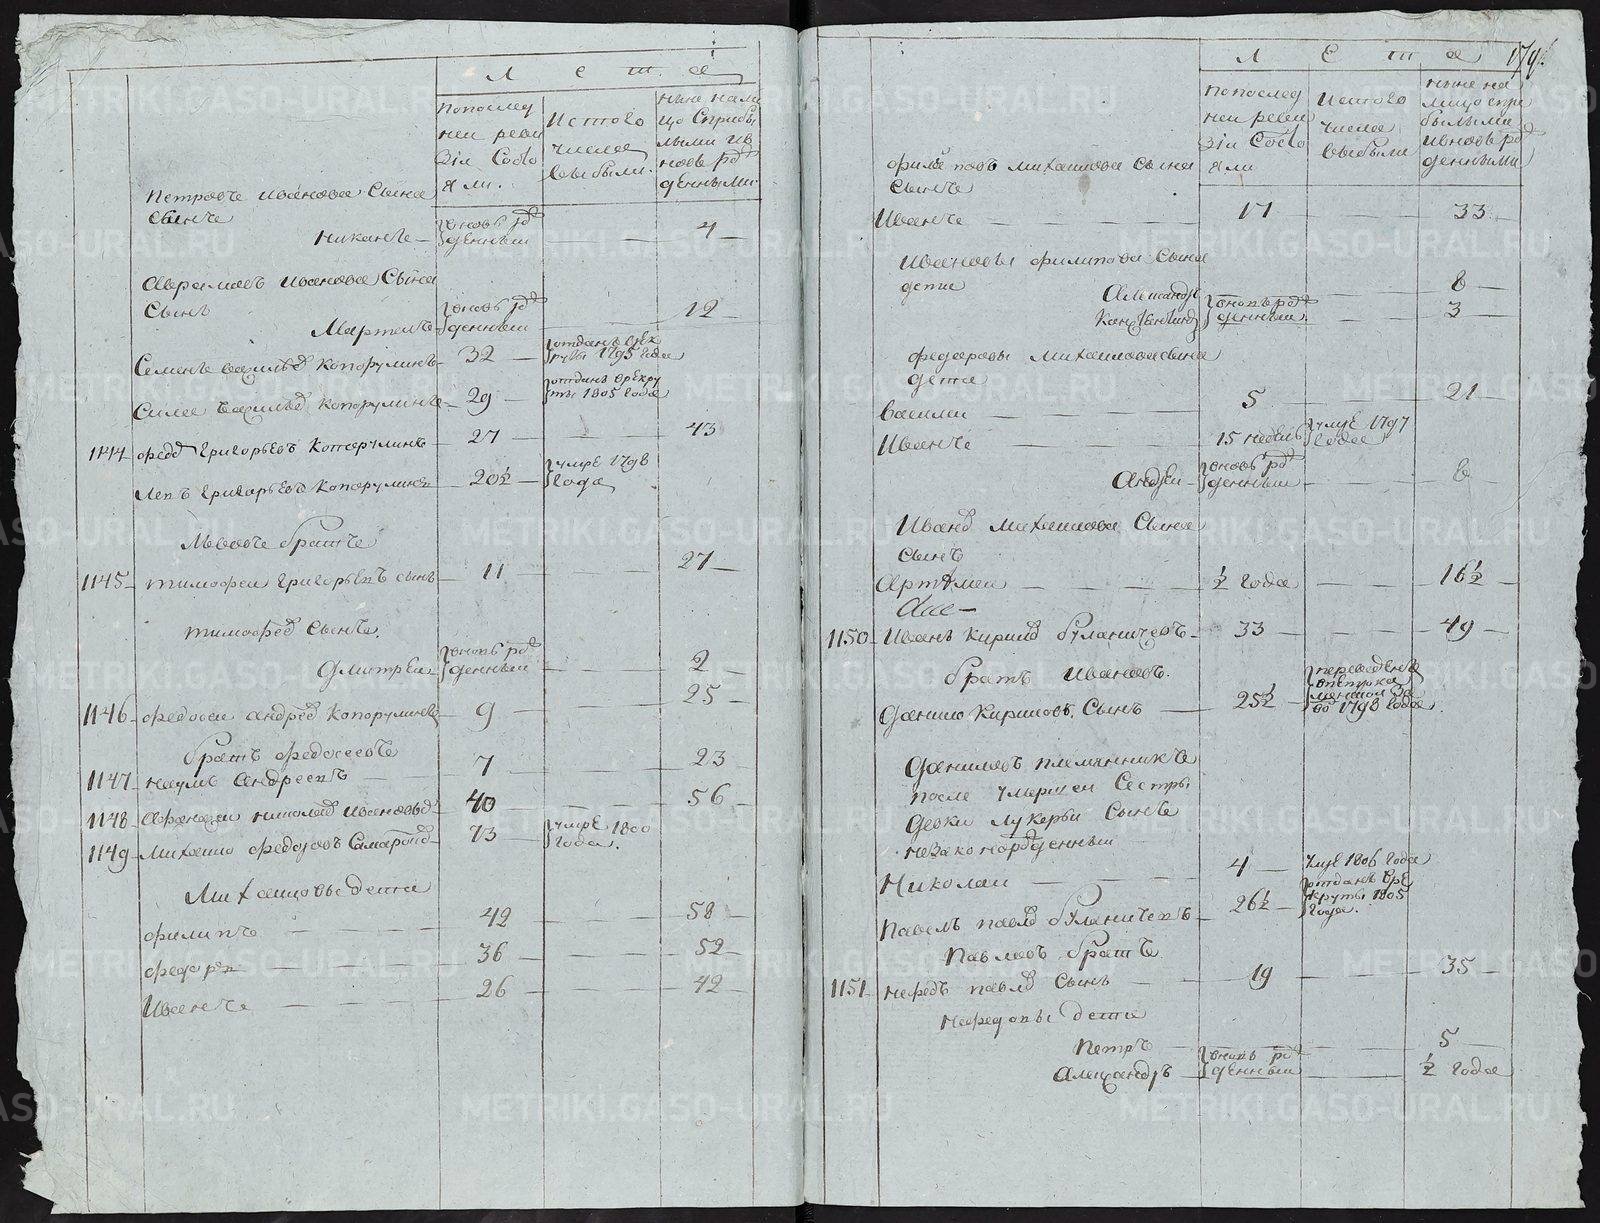 Лета
попослед
неи реви
зіи Состо
яли.
Истого
числа
выбыли.
ныне нали
цо Сприбы
лыми ив
новь рож
денными
Петровъ Иванова Сына
Сынъ
Никанъ
вновь рож
денныи
4
Аврамовъ Иванова Сына
Сынъ
Мартемъ
вновь рож
денныи
12
Семенъ Васильев Копорулинъ
32
отданъ врек
руты 1795 года
Сила Васильев Копорулинъ
29
отданъ врекру
ты 1805 года
1144 Федор Григорьевъ Копорулинъ
27
43
Левъ Григорьевъ Копорулинъ
20½
умре 1798
года
Львовъ братъ
1145 Тимофеи Григорьевъ сынъ
11
27
Тимофеев Сынъ.
Дмитреи
вновь рож
денныи
2
1146 Федосеи Андреев Копорулинъ
9
25
братъ Федосеевъ
1147 Наумъ Андреевъ
7
23
1148 Афанасеи Николаев Ивановъ
40
56
1149 Михаило Федоровъ
73
умре 1800
года.
Михаиловы дети
Филипъ
42
58
Федоръ
36
52
Иванъ
26
42
Лета
попослед
неи реви
зіи Состо
яли
Истого
числа
выбыли
ныне на
лицо спри
былыми
ивновь рож
денными
Филиповъ Михаилова Сына
Сынъ
Иванъ
17
33
Ивановы Филипова Сына
дети
Александръ
8
Канстентинъ
вновь рож
денныи
3
Федоровы Михаилова сына
дети
Васили
5
21
Иванъ
15 недель
умре 1797
года
Андреи
вновь рож
денныи
8
Иванов Михаилова Сына
Сынъ
Артамеи
½ года
16½
1150 Иванъ Кирилов Буланичевъ
33
49
братъ Ивановъ.
Данило Кириловъ Сынъ
25½
переведенъ
1798 года
Даниловъ племянникъ
после умершеи Сестры
девки Лукерьи Сынъ
незаконорожденныи
Николаи
4
умре 1806 года
Павелъ Павлов Буланичевъ
26½
отданъ вре
круты 1805
года.
Павловъ братъ
1151 Нефедъ Павлов Сынъ
19
35
Нефедовы дети
Петръ
5
Александръ
вновь рож
денныи
½ года
METRIKI.GASO-URAL.RU